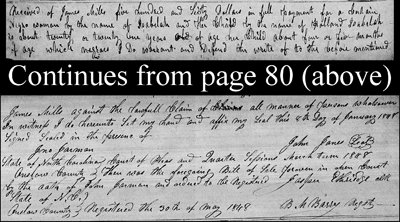 Received of James Mills five hundred and Sixty Dollars in full payment for a certain
negro woman by the name of Isabelah and the Child by the name of Holland Isabelah
is about twenty or twenty one years old of age her Child about four or five months
of age which negroes I do warrant and defend the write of to the before mentioned
Continues from page 80 (above)
James Mills against the lawfull Claim of all manner of Persons whatsoever
In witness I do hereunto Set my hand and affix my Seal this 8th Day of January 1848
Signed Sealed in the presence of
Jno Jarman John James
State of North Carolina Court of Pleas and Quarter Sessions March term 1848
Onslow County Then was the foregoing Bill of Sale proven in open Court
by the oath of John Jarman and ordered to be Registered Jasper Etheridge clk
State of N.C.
Onslow County Registered the 30th of May 1848 B. M. Barrow